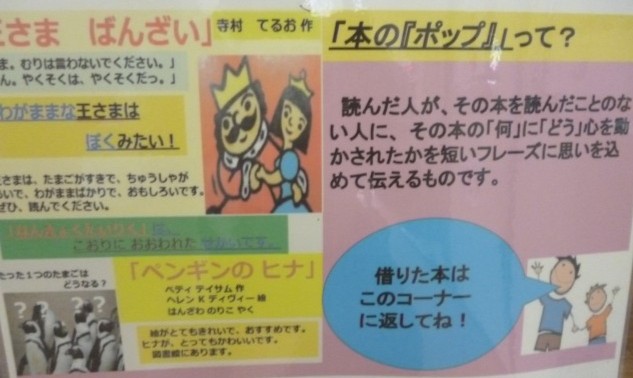 王さま ばんざい」
寺村 てるお 作
ま。むりは言わないでください。」
ん。やくそくは、やくそくだっ。」
わがままな王さまは
ぼくみたい！
王さまは、たまごがすきで、ちゅうしゃが
いで、わがままばかりで、おもしろいです。
ぜひ、読んでください。
こおりに おおわれた
たった１つのたまごは
どうなる？
「ペンギンの ヒナ」
ベティ テイサム 作
ヘレン K ディヴィー 絵
はんざわ のりこ やく
絵がとてもきれいで、おすすめです。
ヒナが、とってもかわいいです。
図書館にあります。
? ? ?
「本の『ポップ』」って？
読んだ人が、その本を読んだことのな
い人に、その本の「何」に「どう」心を動
かされたかを短いフレーズに思いを込
めて伝えるものです。
借りた本は
このコーナー
に返してね！